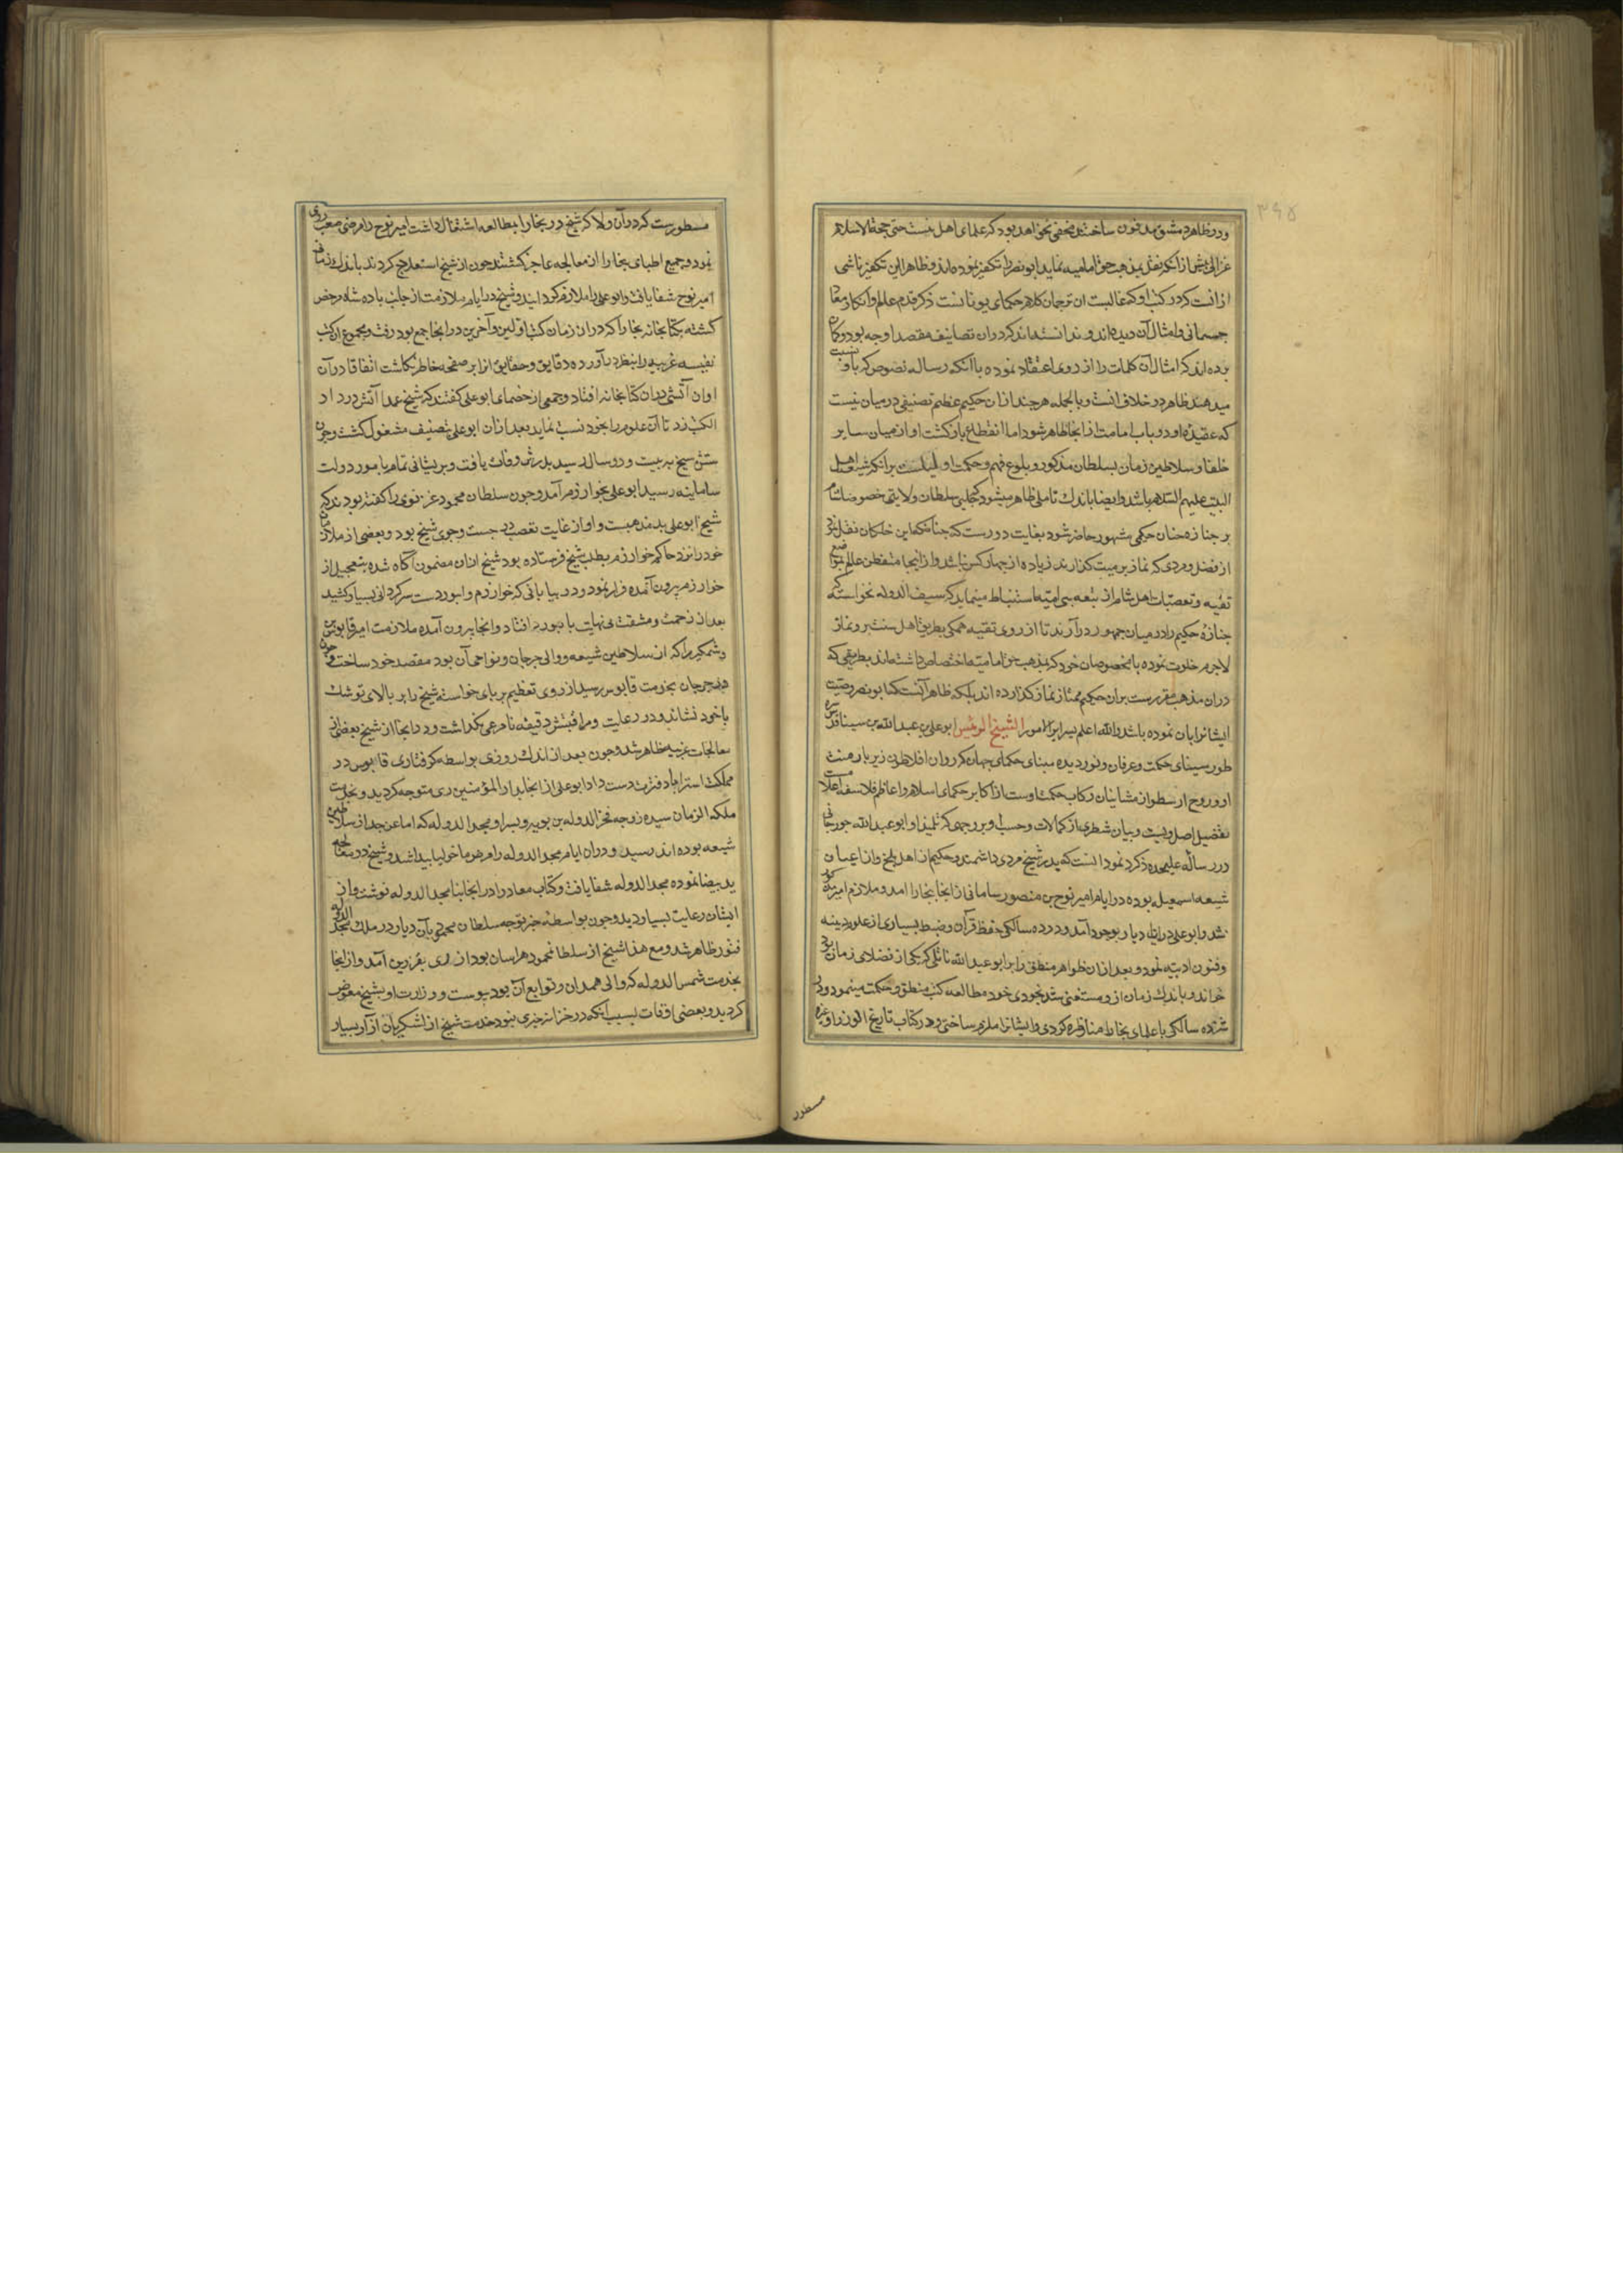 ۳۶۵
ودر ظاهر دمشق مدفون ساختند مخفی نخواهد بود که علمای اهل سنت حتی حجة الاسلام
غزالی پیش از آنکه نقل بمذهب حق امامیه نماید ابونصر را تکفیر نموده اند و ظاهرا این تکفیر ناشی
از آنست که در کتب او که غالبست ان ترجمان کلام حکمای یونانست ذکر قدم عالم و انکار معاد
جسمانی و امثال آن دیده اند و ندانسته اند که در ان تصانیف مقصد او جه بوده و کمان
برده اند که امثال آن کلمات را از روی اعتقاد نموده با آنکه رساله نصوص که باو نسبت
میدهند ظاهر در خلاف انست و بالجمله هر چند از ان حکیم عظیم تصنیفی در میان نیست
که عقیده او در باب امامت از انجا ظاهر شود اما انقطاع بازکشت او از میان سایر
خلفا و سلاطین زمان بسلطان مذکور و بلوغ فهم و حکمت او دلیلست بر انکه شیعه اهل
البیت علیهم السلام باشد وایضا باندك تاملی ظاهر میشود که جلبی سلطان ولایتی خصوصا شام
بر جنازه جنان حکیمی مشهور حاضر شود بغایت دورست که جنانکه ابن خلکان نقل کرد
از فضل و مردی که نماز بر میت کذارند زیاده از جهار کس نباشد و از اینجا متفطن عالم بمواضع
تقیه و تعصبات اهل شام از تبعه بنی امیه استنباط مینماید که سیف الدوله نخواسته که
جنازه حکیم را در میان جمهور در آرند تا از روی تقیه همکی بطریق اهل سنت بر و نماز
لاجرم خلوت نموده با مخصوصان خود که بمذهب حق امامیه اختصاص داشته اند بطریقی که
در ان مذهب مقررست بران حکیم ممتاز نماز کذارده اند بلکه ظاهر آنست که ابونصر وصیت
ایشانرا بان نموده باشد والله اعلم بسرایر الامور الشیخ الرئیس ابوعلی بن عبدالله بن سینا قدس سره
طور سینای حکمت و عرفان و نور دیده بینای حکمای جهان که روان افلاطون زیر بار منت
او و روح ارسطو از مشائیان رکاب حکمت اوست از اکابر حکمای اسلام و اعاظم فلاسفه اعلامست
تفصیل اصل و نسبت و بیان شطری از کمالات و حسب او بر وجهی که تلمیذ او ابو عبدالله جورجانی
در رساله علیحده ذکر نموده انست که پدر شیخ مردی دانشمند و حکیم از اهل بلخ و از اعیان
شیعه اسمعیلیه بوده در ایام امیر نوح بن منصور سامانی از انجا بخارا امد و ملازم امیر
شد و ابوعلی در ان دیار بوجود آمد و در ده سالکی حفظ قرآن و ضبط بسیاری از علوم دینیه
وفنون ادبیه نمود و بعد از ان ظواهر منطق را بر ابو عبدالله ناتلی که یکی از فضلای زمان بود
خواند و باندك زمان از و مستغنی شد بخودی خود مطالعه کتب منطق و حکمت مینمود و در
شانزده سالکی با علمای بخارا مناظره کردی و ایشانرا ملزم ساختی و در کتاب تاریخ الوزرا و غیره
مسطور
مسطورست که در آن ولا که شیخ در بخارا بمطالعه اشتغال داشت امیر نوح را مرضی صعب روی
نمود و جمیع اطبای بخارا از معالجه عاجز کشتند جون از شیخ استعلاج کردند باندك زمانی
امیر نوح شفا یافت و ابوعلی را ملازم کردانید و شیخ در ایام ملازمت از جانب باده شاه مرخص
کشته بکتابخانه بخارا که در ان زمان کتب اولین و آخرین در انجا جمع بود رفت و مجموع ان کتب
نفیسه غریبه را بنظر در آورده دقایق و حقایق انرا بر صفحه خاطر نکاشت اتفاقا در آن
اوان آتشی در ان کتابخانه افتاد و جمعی از خصمای ابوعلی کفتند که شیخ عمدا آتش در داد
الکتب زد تا آن علوم را بخود نسبت نماید بعد از ان ابوعلی بتصنیف مشغول کشت و جون
سن شیخ به بیست و دو سال رسید پدرش وفات یافت و پریشانی تمام بامور دولت
سامانیه رسید ابوعلی بخوارزم آمد و جون سلطان محمود غزنوی را کفته بودند که
شیخ ابوعلی بد مذهبست و او از غایت تعصب در جست و جوی شیخ بود و بعضی از ملازمان
خود را نزد حاکم خوارزم بطلب شیخ فرستاده بود شیخ از ان مضمون آگاه شده بتعجیل از
خوارزم بیرون آمده فرار نمود و در بیابانی که خوارزم و ابیوردست سرکردانی بسیار کشید
بعد از زحمت و مشقت بی نهایت بابیورد افتاد و از انجا بیرون آمده ملازمت امیر قابوس بن
وشمکیر را که از سلاطین شیعه و والی جرجان و نواحی آن بود مقصد خود ساخت و جون
در جرجان بخدمت قابوس رسید از روی تعظیم بر پای خواسته شیخ را بر بالای توشك
با خود نشاند و در رعایت و مراقبتش دقیقه نامرعی نکذاشت و در انجا از شیخ بعضی از
معالجات غریبه ظاهر شد و جون بعد از اندك روزی بواسطه کرفتاری قابوس در
مملکت استراباد فترت دست داد ابوعلی از انجا بدار المؤمنین ری متوجه کردید و بخدمت
ملکة الزمان سیده زوجه فخر الدوله بن بویه و پسر او مجد الدوله که اما عن جد از سلاطین
شیعه بوده اند رسید و در ان ایام مجد الدوله را مرض مالخولیا پیدا شد و شیخ در معالجه
ید بیضا نموده مجد الدوله شفا یافت و کتاب معاد را در انجا بنام مجد الدوله نوشت و از
ایشان رعایت بسیار دید و جون بواسطه خبر توجه سلطان محمود بآن دیار در ملك مجد الدوله
فتور ظاهر شد و مع هذا شیخ از سلطان محمود هراسان بود از ری بقزوین آمد و از انجا
بخدمت شمس الدوله که والی همدان و توابع آن بود پیوست و وزارت او بشیخ مفوض
کردید و بعضی اوقات بسبب آنکه در خزانه خبری نبود خدمت شیخ از لشکریان آزار بسیار